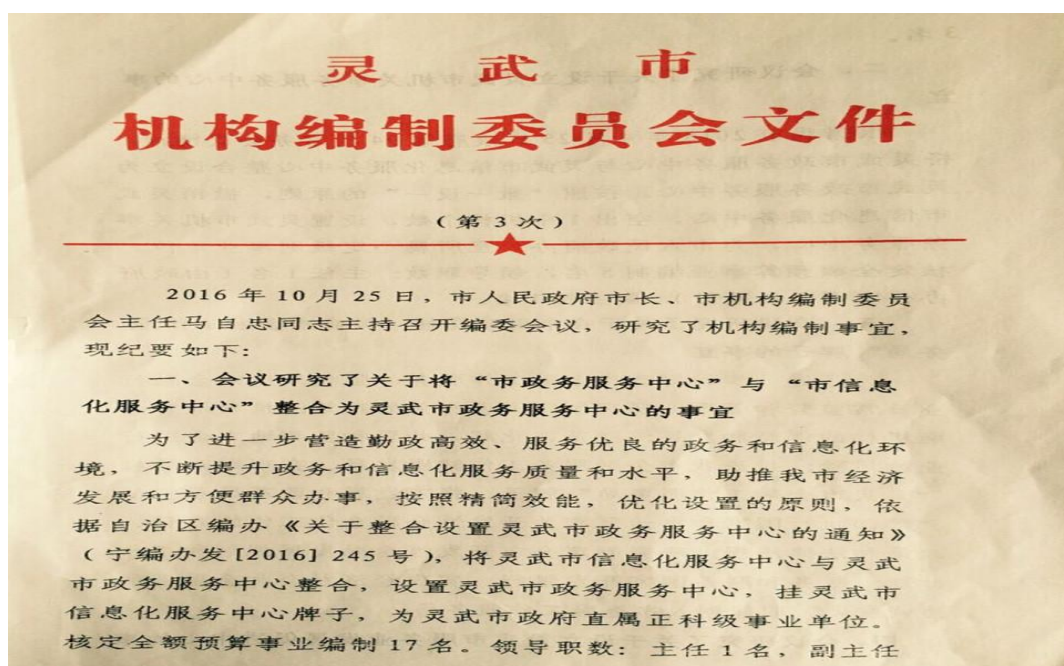 灵武市
机构编制委员会文件
（第3次）
2016年10月25日，市人民政府市长、市机构编制委员
会主任马自忠同志主持召开编委会议，研究了机构编制事宜，
现纪要如下：
一、会议研究了关于将“市政务服务中心”与“市信息
化服务中心”整合为灵武市政务服务中心的事宜
为了进一步营造勤政高效、服务优良的政务和信息化环
境，不断提升政务和信息化服务质量和水平，助推我市经济
发展和方便群众办事，按照精简效能，优化设置的原则，依
据自治区编办《关于整合设置灵武市政务服务中心的通知》
（宁编办发[2016]245号），将灵武市信息化服务中心与灵武
市政务服务中心整合，设置灵武市政务服务中心，挂灵武市
信息化服务中心牌子，为灵武市政府直属正科级事业单位。
核定全额预算事业编制17名。领导职数：主任1名，副主任